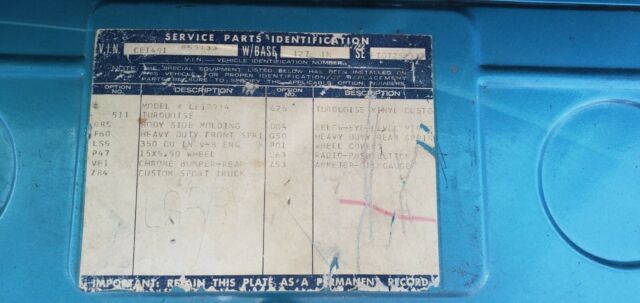 SERVICE PARTS IDENTIFICATION
V.I.N. CE1491 W/BASE 127 IN SE
V.I.N. — VEHICLE IDENTIFICATION NUMBER
THE SPECIAL EQUIPMENT LISTED BELOW HAS BEEN INSTALLED ON
THIS VEHICLE. FOR PROPER IDENTIFICATION REPLACEMENT
OPTION NO. DESCRIPTION OPTION NO. DESCRIPTION
MODEL # CE10934 626 TURQUOISE VINYL CUSTO
511 TURQUOISE
B85 BODY SIDE MOLDING
F60 HEAVY DUTY FRONT SPRI G50 HEAVY DUTY REAR SPRIN
LS9 350 CU IN V-8 ENG P01 WHEEL COVERS
P47 15X5.50 WHEEL U63 RADIO-PUSH BUTTON
VF1 CHROME BUMPER-REAR Z53 AMMETER-OIL GAUGE
Z84 CUSTOM SPORT TRUCK
IMPORTANT: RETAIN THIS PLATE AS A PERMANENT RECORD